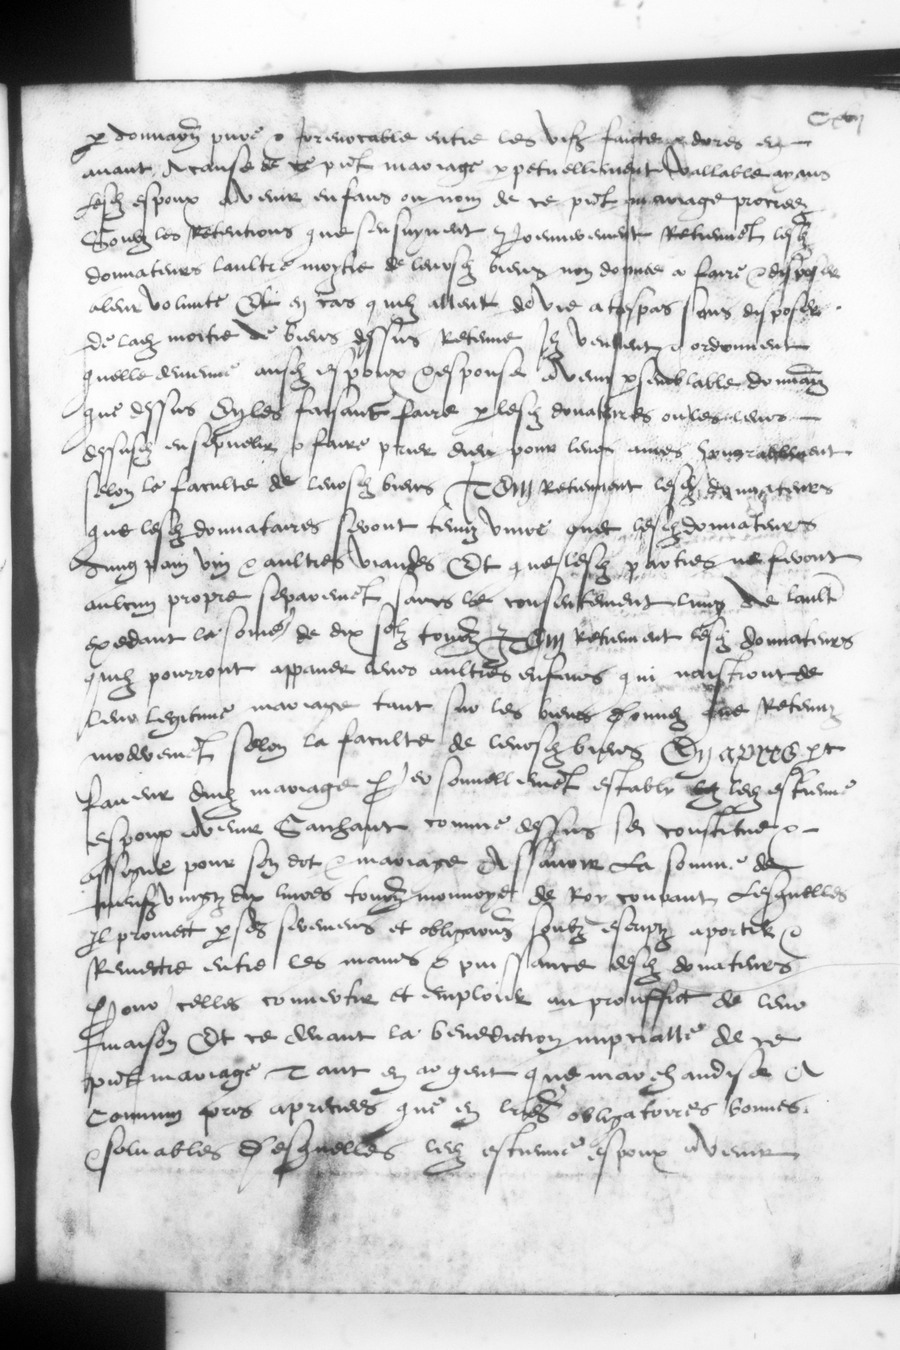 Cxvii
p donnaon pure & Irrevocable entre les vifz faicte & dores en
avant A cause de ce pnt mariage ppetuellement Vallable ayans
lesd espoux Advenir enfans ou nom de ce pnt mariage procreez
Soubz les Retentions que sensuyvent Premierement Retienent lesd
donnateurs laultre moytie de leursd biens non donnee a faire & disposer
a leur volunte Et en cas quilz allent de vie a trespas sans disposer
de lad moitie de biens dessus Retenue Ilz veulent & ordonnent
quelle advienne ausd espoux & espouse Advenir p semblable donnaon
que dessus En les faisant faire p lesd donataires ou les leurs
dessusd ensepvelir & faire prier dieu pour leurs ames honorablement
selon la faculte de leursd biens Item Retiennent lesd donnateurs
que lesd donnataires seront tenuz vivre avec lesd donnateurs
dung pain vin & aultres viandes Et que lesd parties ne feront
aulcun propre separement sans le consentement lung de lault
exedant la some de dix solz tournz Item Retiennent lesd donnateurs
quilz pourront appaner leurs aultres enfans qui naistront de
leur legitime mariage tant sur les biens donnez que Retenuz
moderement selon la faculte de leursd biens En apres pt
faveur dud mariage personnellement estably led estienne
espoux Advenir Saichant comme dessus se constitue &
assigne pour son dot & mariage Assavoir La somme de
vingtz dix livres tournz monnoye de Roy courant Lesquelles
Il promect p ses seremens et obligaons soubz escriptz aporter &
Remectre entre les mains & puissance desd donateurs
Pour Icelles convertir et emploier au prouffict de leur
maison Et ce avant la benediction nupcialle de ce
pnt mariage Tant en argent que marchandise A
Commun pris apreciees que en lres obligatoires bonnes
& soluables Desquelles led estienne espoux Advenir